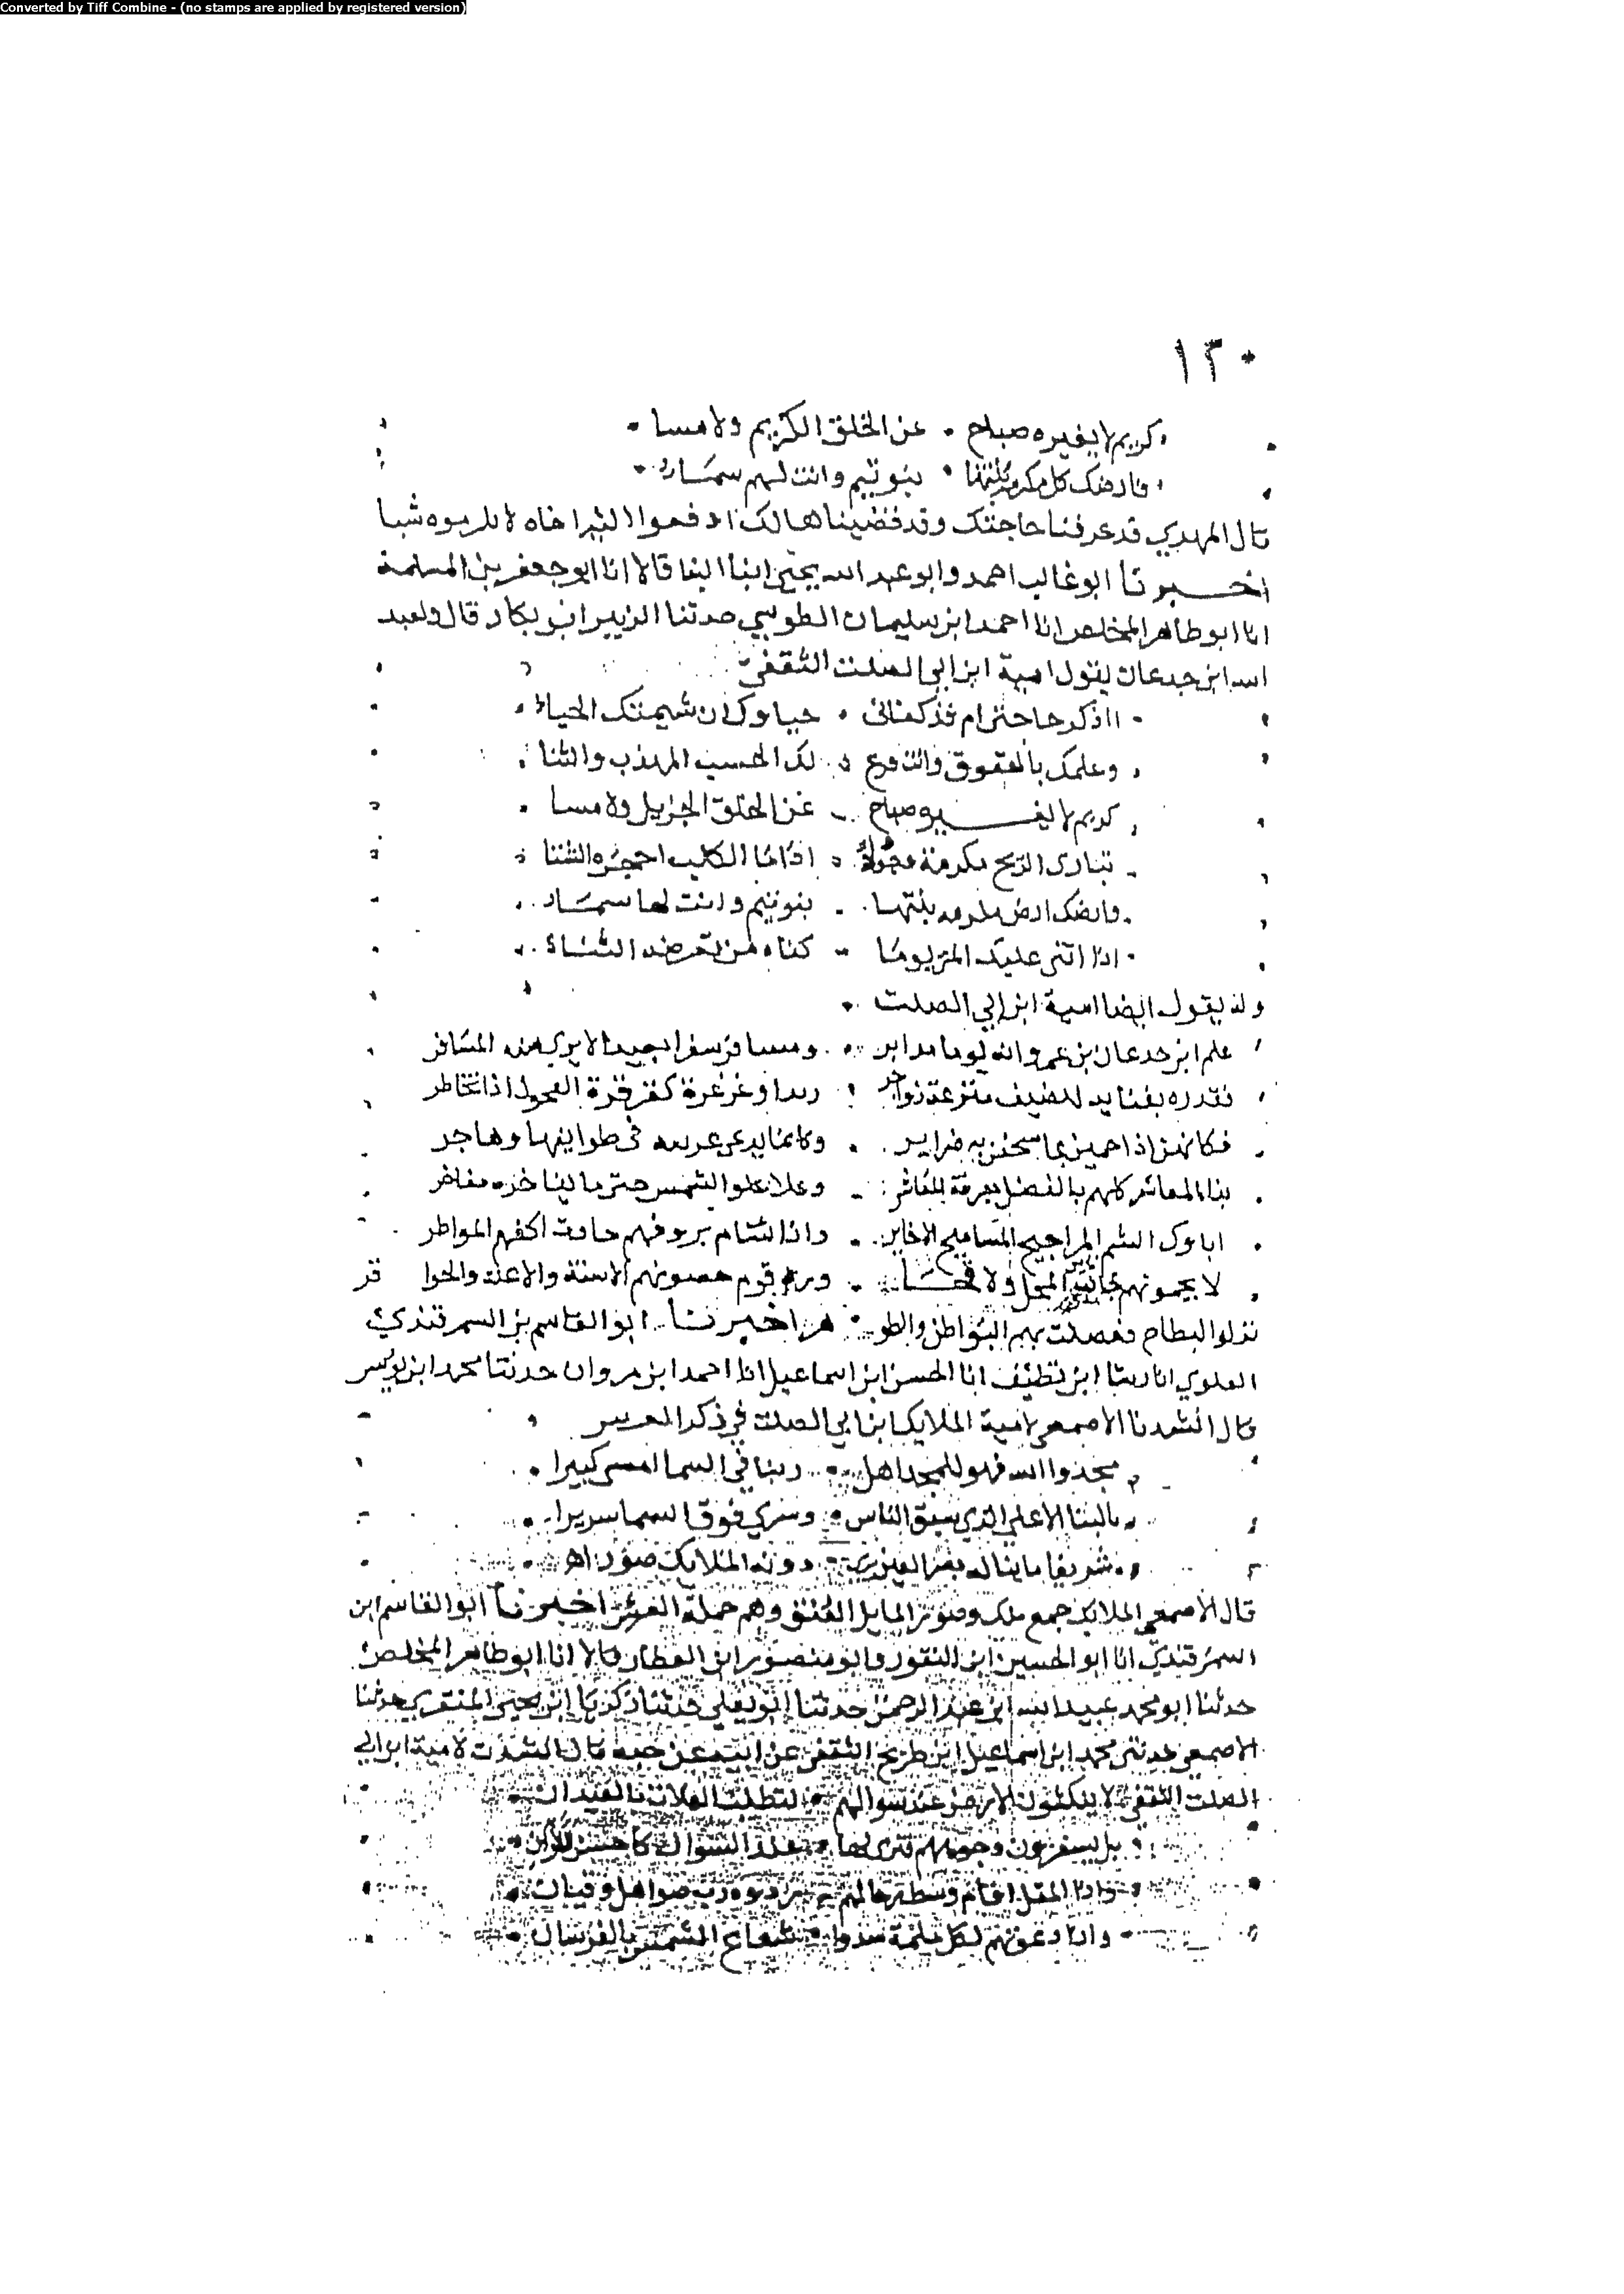 Converted by Tiff Combine - (no stamps are applied by registered version)
١٣٠
كريم لا يغيره صباح . عن الخلق الكريم ولا مسا
فارضك كل مكرمة بنتها . بنو تيم وانت لهم سماء
قال المهدي قد عرفنا حاجتك وقد قضيناها لك ادفعوا
اخبرنا ابو غالب احمد وابو عبد الله يحيى ابنا البنا قالا انا ابو جعفر بن المسلمة
انا ابو طاهر المخلص انا احمد ابن سليمان الطوسي حدثنا الزبير ابن بكار قال ولعبد
الله ابن جدعان يقول امية ابن ابي الصلت الثقفي
ااذكر حاجتي ام قد كفاني . حياوك ان شيمتك الحياء
وعلمك بالحقوق وانت فرع . لك الحسب المهذب والثنا
كريم لا يغيره صباح . عن الخلق الجزيل ولا مسا
تبارى الريح مكرمة . اذا ما الكلب احجره الشتا
فارضك ارض بنتها . بنو تيم وانت لها سماء
اذا اثنى عليك المر يوما . كفاه من تعرضه الثناء
وله يقول ايضا امية ابن ابي الصلت
علم ابن جدعان بن عمرو انه يوما مدابر . ومسافر سفرا بعيدا لا يرى منه المسافر
فقدره بفنايه للضيف مترعة زواخر . وغرغرة كقرقرة الفحول اذا تخاطر
فكانهن اذا حمين بما سحن به ضراير . وكانما في طوايفها وهاجر
بذ المعاشر كلهم بالفضل المعاشر . وعلا علو الشمس حتى ما يفاخره مفاخر
اباوك الشم المراجيح المساميح الاخاير . واذا تشام بروقهم جادت اكفهم المواطر
لا يحمونهم المحل ولا . قوم حصونهم الاسنة والاعنة والحوا فر
نزلوا البطاح ففصلت بهم البواطن والظو اخبرنا ابو القاسم بن السمرقندي
العلوي انا رشا ابن نظيف انا الحسن ابن اسماعيل انا احمد ابن مروان حدثنا محمد ابن يونس
قال انشدنا الاصمعي لامية الملايك ابن ابي الصلت في ذكر
مجدوا الله فهو للمجد اهل . ربنا في السما امسى كبيرا
بالبنا الاعلى الذي سبق الناس . وسوى فوق السما سريرا
شرجعا ما يناله بصر العين . دونه الملايك صورا اهـ
قال الاصمعي الملايك جمع ملك وصور المايل العنق وهم حملة العرش اخبرنا ابو القاسم ابن
السمرقندي انا ابو الحسين ابن النقور وابو منصور ابن العطار قالا انا ابو طاهر المخلص
حدثنا ابو محمد عبيد الله ابن عبد الرحمن حدثنا ابو يعلى حدثنا زكريا ابن يحيى المنقري حدثنا
الاصمعي حدثني محمد ابن اسماعيل ابن طريح الثقفي عن ابيه عن جده قال انشدت لامية ابن ابي
الصلت الثقفي لا ينكثون الارض عند سوالهم . لتطلب العلات بالعيدان
بل يسفرون وجوههم فترى لها . عند السوال كاحسن الالوان
واذا المقل اقام وسط رحالهم . ردوه رب صواهل وقيان
واذا دعوتهم لكل ملمة سدوا . شعاع الشمس بالفرسان